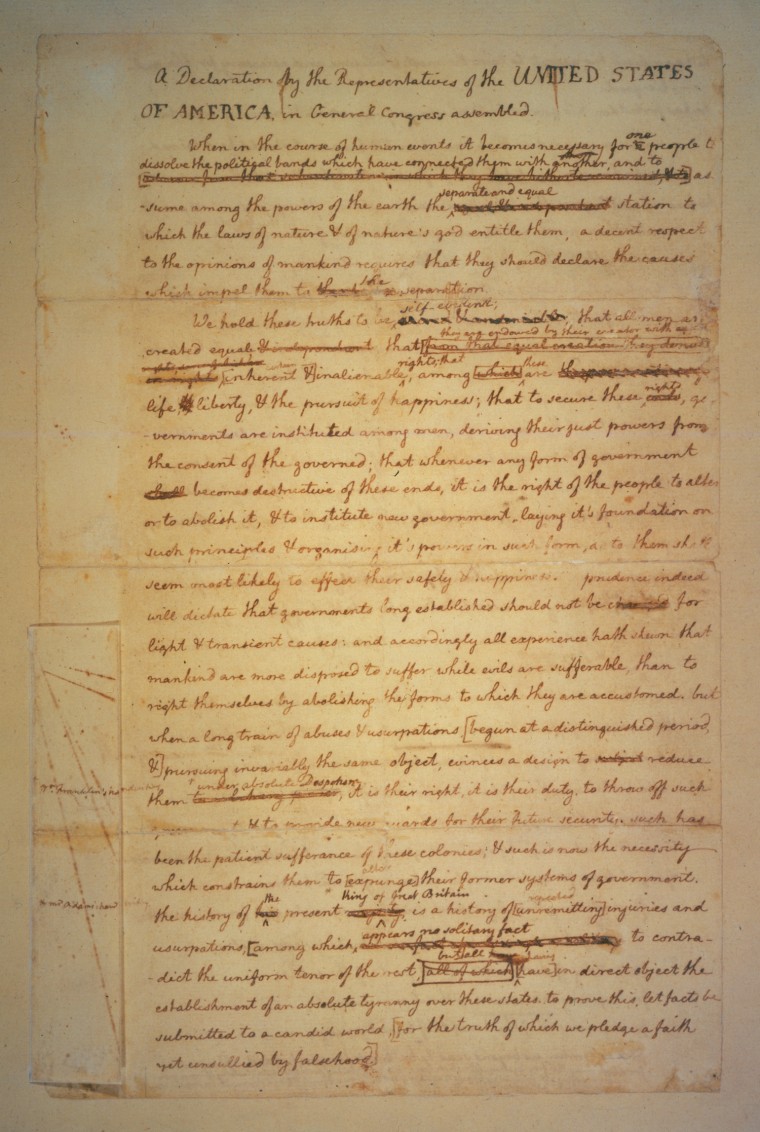 A Declaration by the Representatives of the UNITED STATES
OF AMERICA, in General Congress assembled.
one
When in the course of human events it becomes necessary for people to
dissolve the political bands which have connected them with another, and to
as
separate and equal
-sume among the powers of the earth the station to
which the laws of nature & of nature's god entitle them, a decent respect
to the opinions of mankind requires that they should declare the causes
the
which impel them to separation.
self-evident;
We hold these truths to be that all men are
they are endowed by their creator with
created equal & independent that [from that equal creation they derive
rights; that these
[inherent &] inalienable, among [which] are
rights
life, liberty, & the pursuit of happiness; that to secure these ends, go-
-vernments are instituted among men, deriving their just powers from
the consent of the governed; that whenever any form of government
shall becomes destructive of these ends, it is the right of the people to alter
or to abolish it, & to institute new government, laying it's foundation on
such principles & organising it's powers in such form, as to them shall
seem most likely to effect their safety & happiness. prudence indeed
will dictate that governments long established should not be changed for
light & transient causes: and accordingly all experience hath shewn that
mankind are more disposed to suffer while evils are sufferable, than to
right themselves by abolishing the forms to which they are accustomed. but
when a long train of abuses & usurpations, [begun at a distinguished period,
&] pursuing invariably the same object, evinces a design to subject reduce
under absolute Despotism
them, it is their right, it is their duty, to throw off such
& to provide new guards for their future security. such has
been the patient sufferance of these colonies; & such is now the necessity
alter
which constrains them to [expunge] their former systems of government.
the King of Great Britain repeated
the history of his present majesty, is a history of [unremitting] injuries and
appears no solitary fact
usurpations, [among which, to contra-
but all have
-dict the uniform tenor of the rest, [all of which] [have] in direct object the
establishment of an absolute tyranny over these states. to prove this, let facts be
submitted to a candid world, [for the truth of which we pledge a faith
yet unsullied by falsehood.]
Dr. Franklin's handwriting
Mr. Adams' hand writing